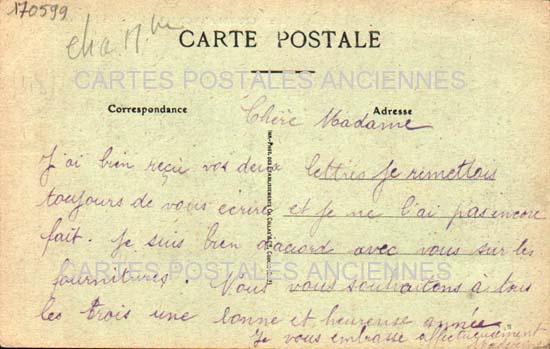 170599
CARTE POSTALE
CARTES POSTALES ANCIENNES
Correspondance
Adresse
Chère Madame
J'ai bien reçu vos deux lettres je remettois
toujours de vous écrire et je ne l'ai pas encore
fait. Je suis bien d'accord avec vous sur les
fournitures. Nous vous souhaitons à tous
CARTES POSTALES ANCIENNES
les trois une bonne et heureuse année.
Je vous embrasse affectueusement